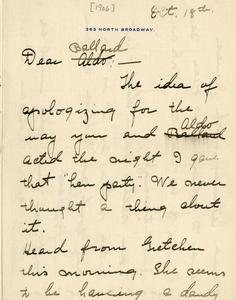 [1906]
Oct. 18th.
363 NORTH BROADWAY.
Ballard
Dear Aldo:—
The idea of
apologizing for the
Aldo
way you and Ballard
acted the night I gave
that "hen party". We never
thought a thing about
it.
Heard from Gretchen
this morning. She seems
to be having a dandy